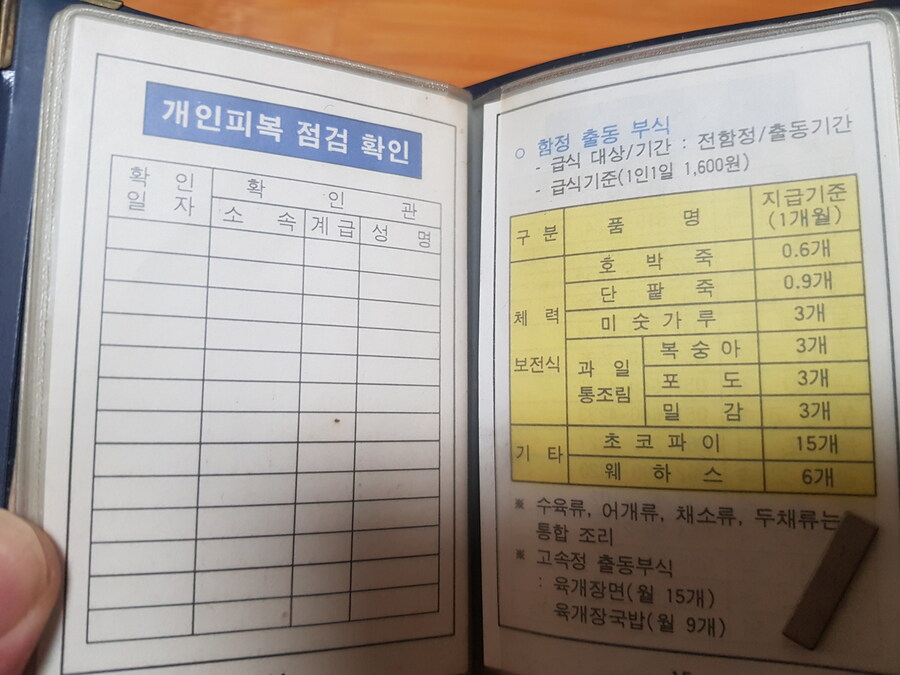 개인피복 점검 확인
확 인 일 자
확 인 관
소 속 계 급 성 명
○ 함정 출동 부식
- 급식 대상/기간 : 전함정/출동기간
- 급식기준(1인1일 1,600원)
구 분 품 명 지급기준 (1개월)
체 력 보전식
호 박 죽 0.6개
단 팥 죽 0.9개
미 숫 가 루 3개
과 일 통조림
복 숭 아 3개
포 도 3개
밀 감 3개
기 타
초 코 파 이 15개
웨 하 스 6개
※ 수육류, 어개류, 채소류, 두채류는
통합 조리
※ 고속정 출동부식
: 육개장면(월 15개)
육개장국밥(월 9개)